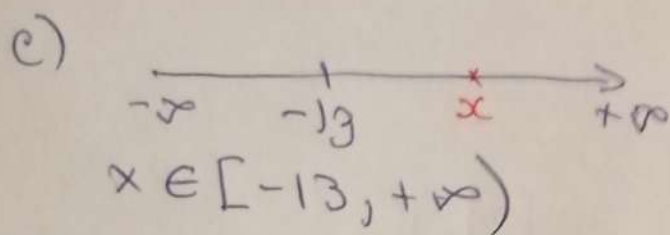 c)
-∞ -13 x +∞
x ∈ [-13, +∞)